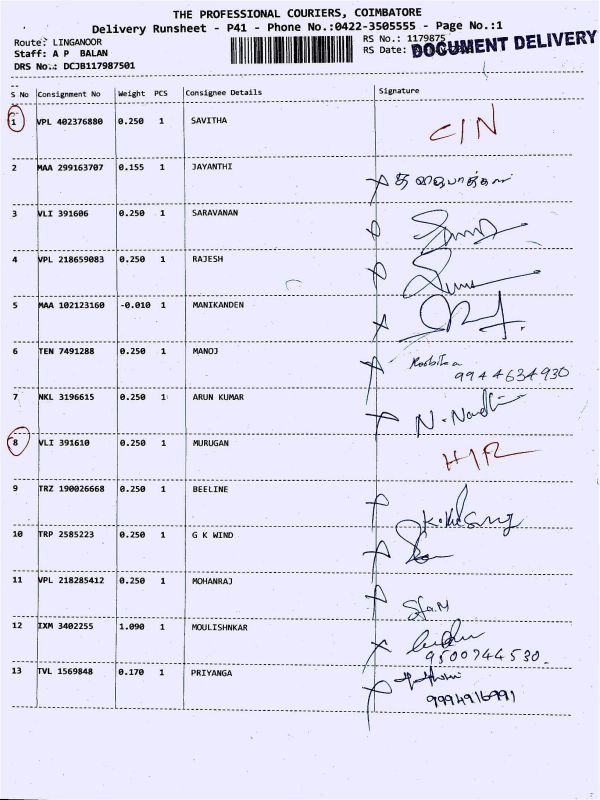 THE PROFESSIONAL COURIERS, COIMBATORE
Delivery Runsheet - P41 - Phone No.:0422-3505555 - Page No.:1
Route: LINGANOOR
RS No.: 1179875
Staff: A P BALAN
RS Date:
DOCUMENT DELIVERY
DRS No.: DCJB117987501
S No Consignment No Weight PCS Consignee Details Signature
1 VPL 402376880 0.250 1 SAVITHA C/N
2 MAA 299163707 0.155 1 JAYANTHI
3 VLI 391606 0.250 1 SARAVANAN
4 VPL 218659083 0.250 1 RAJESH
5 MAA 102123160 -0.010 1 MANIKANDEN
6 TEN 7491288 0.250 1 MANOJ
9944634930
7 NKL 3196615 0.250 1 ARUN KUMAR N. Nandhi
8 VLI 391610 0.250 1 MURUGAN H/R
9 TRZ 190026668 0.250 1 BEELINE
10 TRP 2585223 0.250 1 G K WIND
11 VPL 218285412 0.250 1 MOHANRAJ
12 IXM 3402255 1.090 1 MOULISHNKAR
9500744530.
13 TVL 1569848 0.170 1 PRIYANGA
9994916991